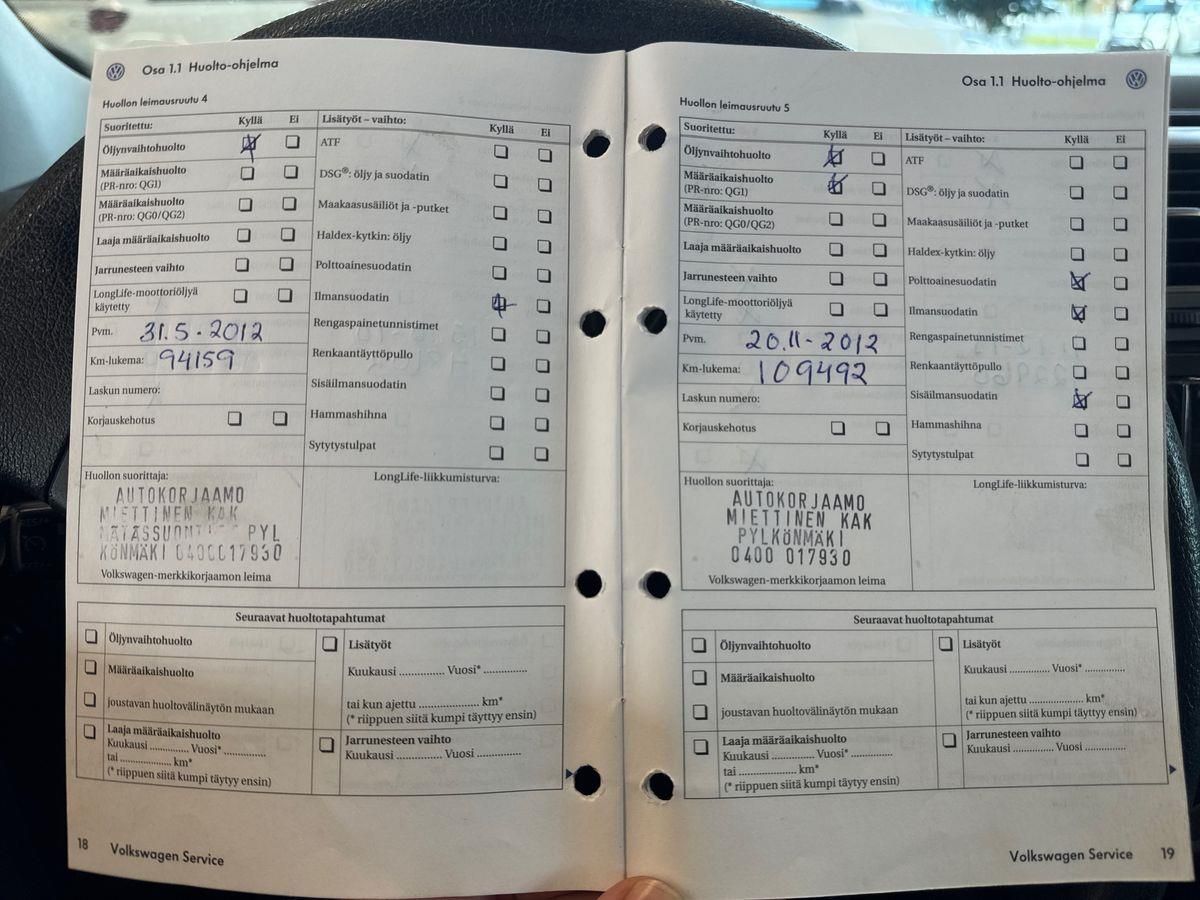 Osa 1.1 Huolto-ohjelma
Huollon leimausruutu 4
Suoritettu: Kyllä Ei
Öljynvaihtohuolto
Määräaikaishuolto
(PR-nro: QG1)
Määräaikaishuolto
(PR-nro: QG0/QG2)
Laaja määräaikaishuolto
Jarrunesteen vaihto
LongLife-moottoriöljyä
käytetty
Pvm. 31.5.2012
Km-lukema: 94159
Laskun numero:
Korjauskehotus
Lisätyöt – vaihto: Kyllä Ei
ATF
DSG®: öljy ja suodatin
Maakaasusäiliöt ja -putket
Haldex-kytkin: öljy
Polttoainesuodatin
Ilmansuodatin
Rengaspainetunnistimet
Renkaantäyttöpullo
Sisäilmansuodatin
Hammashihna
Sytytystulpat
Huollon suorittaja:
AUTOKORJAAMO
MIETTINEN KAK
PYL
KÖNMÄKI 0400017930
Volkswagen-merkkikorjaamon leima
LongLife-liikkumisturva:
Seuraavat huoltotapahtumat
Öljynvaihtohuolto
Määräaikaishuolto
joustavan huoltovälinäytön mukaan
Laaja määräaikaishuolto
Kuukausi .............. Vuosi* ..............
tai ..................... km*
(* riippuen siitä kumpi täytyy ensin)
Lisätyöt
Kuukausi ............... Vuosi* ..............
tai kun ajettu ..................... km*
(* riippuen siitä kumpi täyttyy ensin)
Jarrunesteen vaihto
Kuukausi ............... Vuosi ...............
18 Volkswagen Service
Osa 1.1 Huolto-ohjelma
Huollon leimausruutu 5
Suoritettu: Kyllä Ei
Öljynvaihtohuolto
Määräaikaishuolto
(PR-nro: QG1)
Määräaikaishuolto
(PR-nro: QG0/QG2)
Laaja määräaikaishuolto
Jarrunesteen vaihto
LongLife-moottoriöljyä
käytetty
Pvm. 20.11-2012
Km-lukema: 109492
Laskun numero:
Korjauskehotus
Lisätyöt – vaihto: Kyllä Ei
ATF
DSG®: öljy ja suodatin
Maakaasusäiliöt ja -putket
Haldex-kytkin: öljy
Polttoainesuodatin
Ilmansuodatin
Rengaspainetunnistimet
Renkaantäyttöpullo
Sisäilmansuodatin
Hammashihna
Sytytystulpat
Huollon suorittaja:
AUTOKORJAAMO
MIETTINEN KAK
PYLKÖNMÄKI
0400 017930
Volkswagen-merkkikorjaamon leima
LongLife-liikkumisturva:
Seuraavat huoltotapahtumat
Öljynvaihtohuolto
Määräaikaishuolto
joustavan huoltovälinäytön mukaan
Laaja määräaikaishuolto
Kuukausi .............. Vuosi* ..............
tai ..................... km*
(* riippuen siitä kumpi täytyy ensin)
Lisätyöt
Kuukausi ............... Vuosi* ..............
tai kun ajettu ..................... km*
(* riippuen siitä kumpi täyttyy ensin)
Jarrunesteen vaihto
Kuukausi ............... Vuosi ...............
Volkswagen Service 19